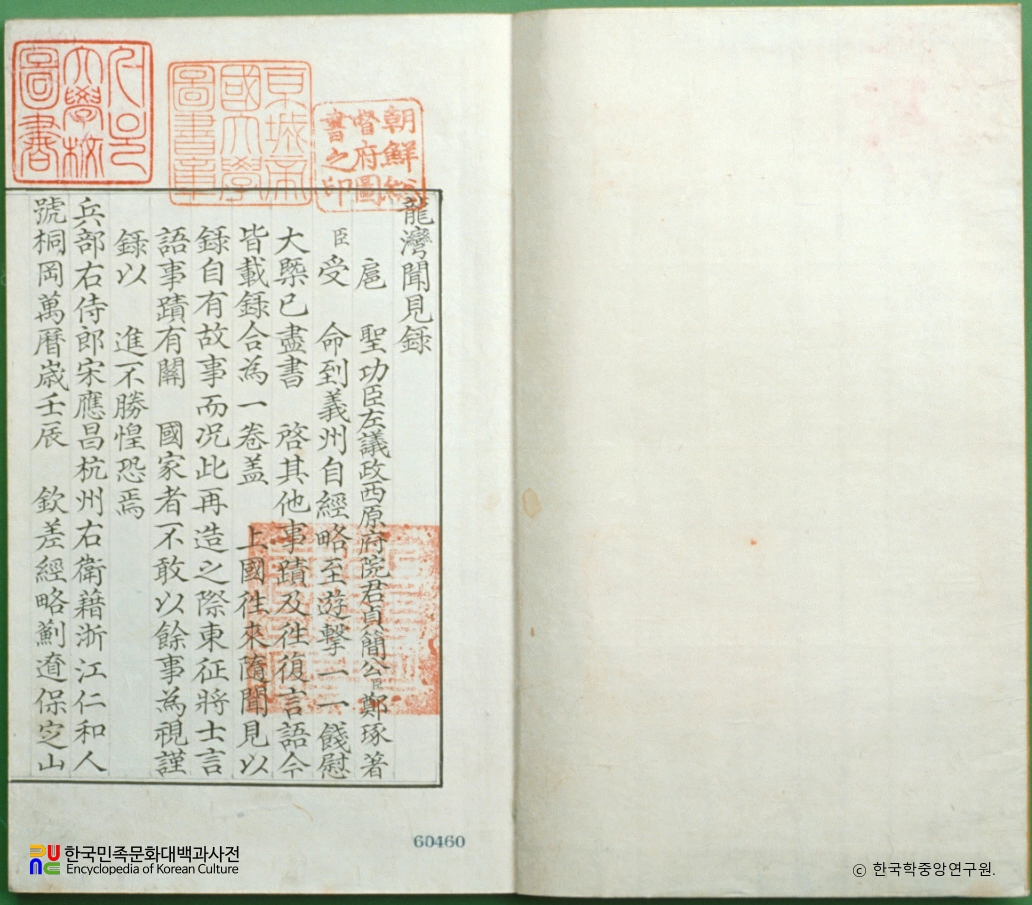 龍灣聞見錄
扈 聖功臣左議政西原府院君貞簡公臣鄭琢著
臣受 命到義州自經略至遊擊一一餞慰
大槩已盡書 啓其他事蹟及徃復言語今
皆載錄合爲一卷盖 上國徃來隨聞見以
錄自有故事而况此再造之際東征將士言
語事蹟有關 國家者不敢以餘事爲視謹
錄以 進不勝惶恐焉
兵部右侍郎宋應昌杭州右衛籍浙江仁和人
號桐岡萬曆歲壬辰 欽差經略薊遼保定山
朝鮮總
督府圖
書之印
京城帝
國大學
圖書章
서울
大學校
圖書
60460
한국민족문화대백과사전
Encyclopedia of Korean Culture
ⓒ 한국학중앙연구원.